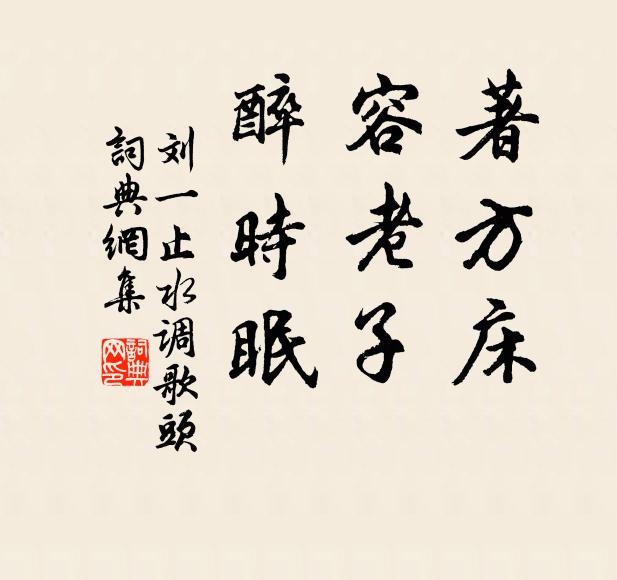 著方床
容老子
醉時眠
刘一止水调歌頭
詞典網集
詞典網印